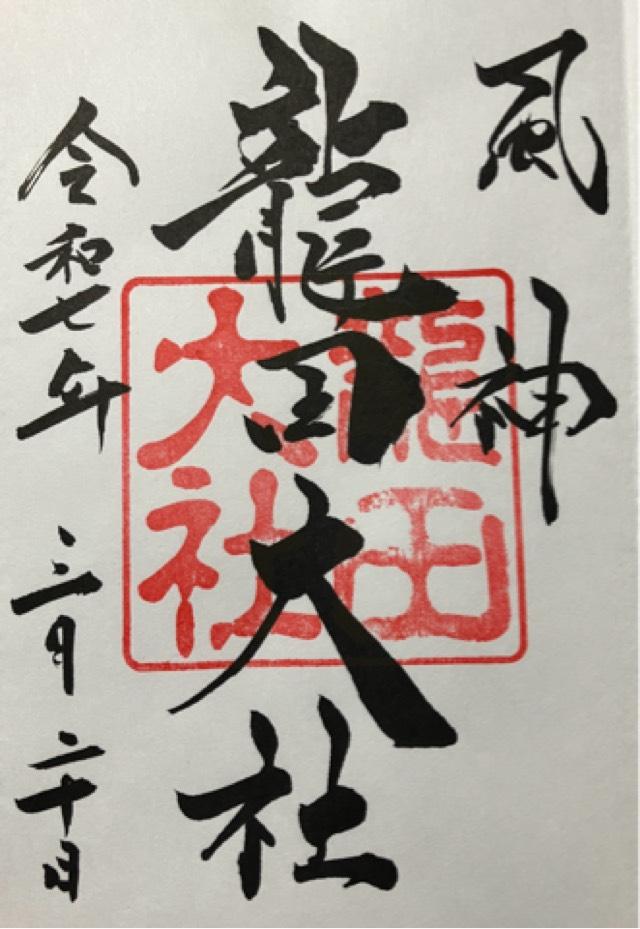 風神
龍田大社
龍田
大社
令和七年三月二十日